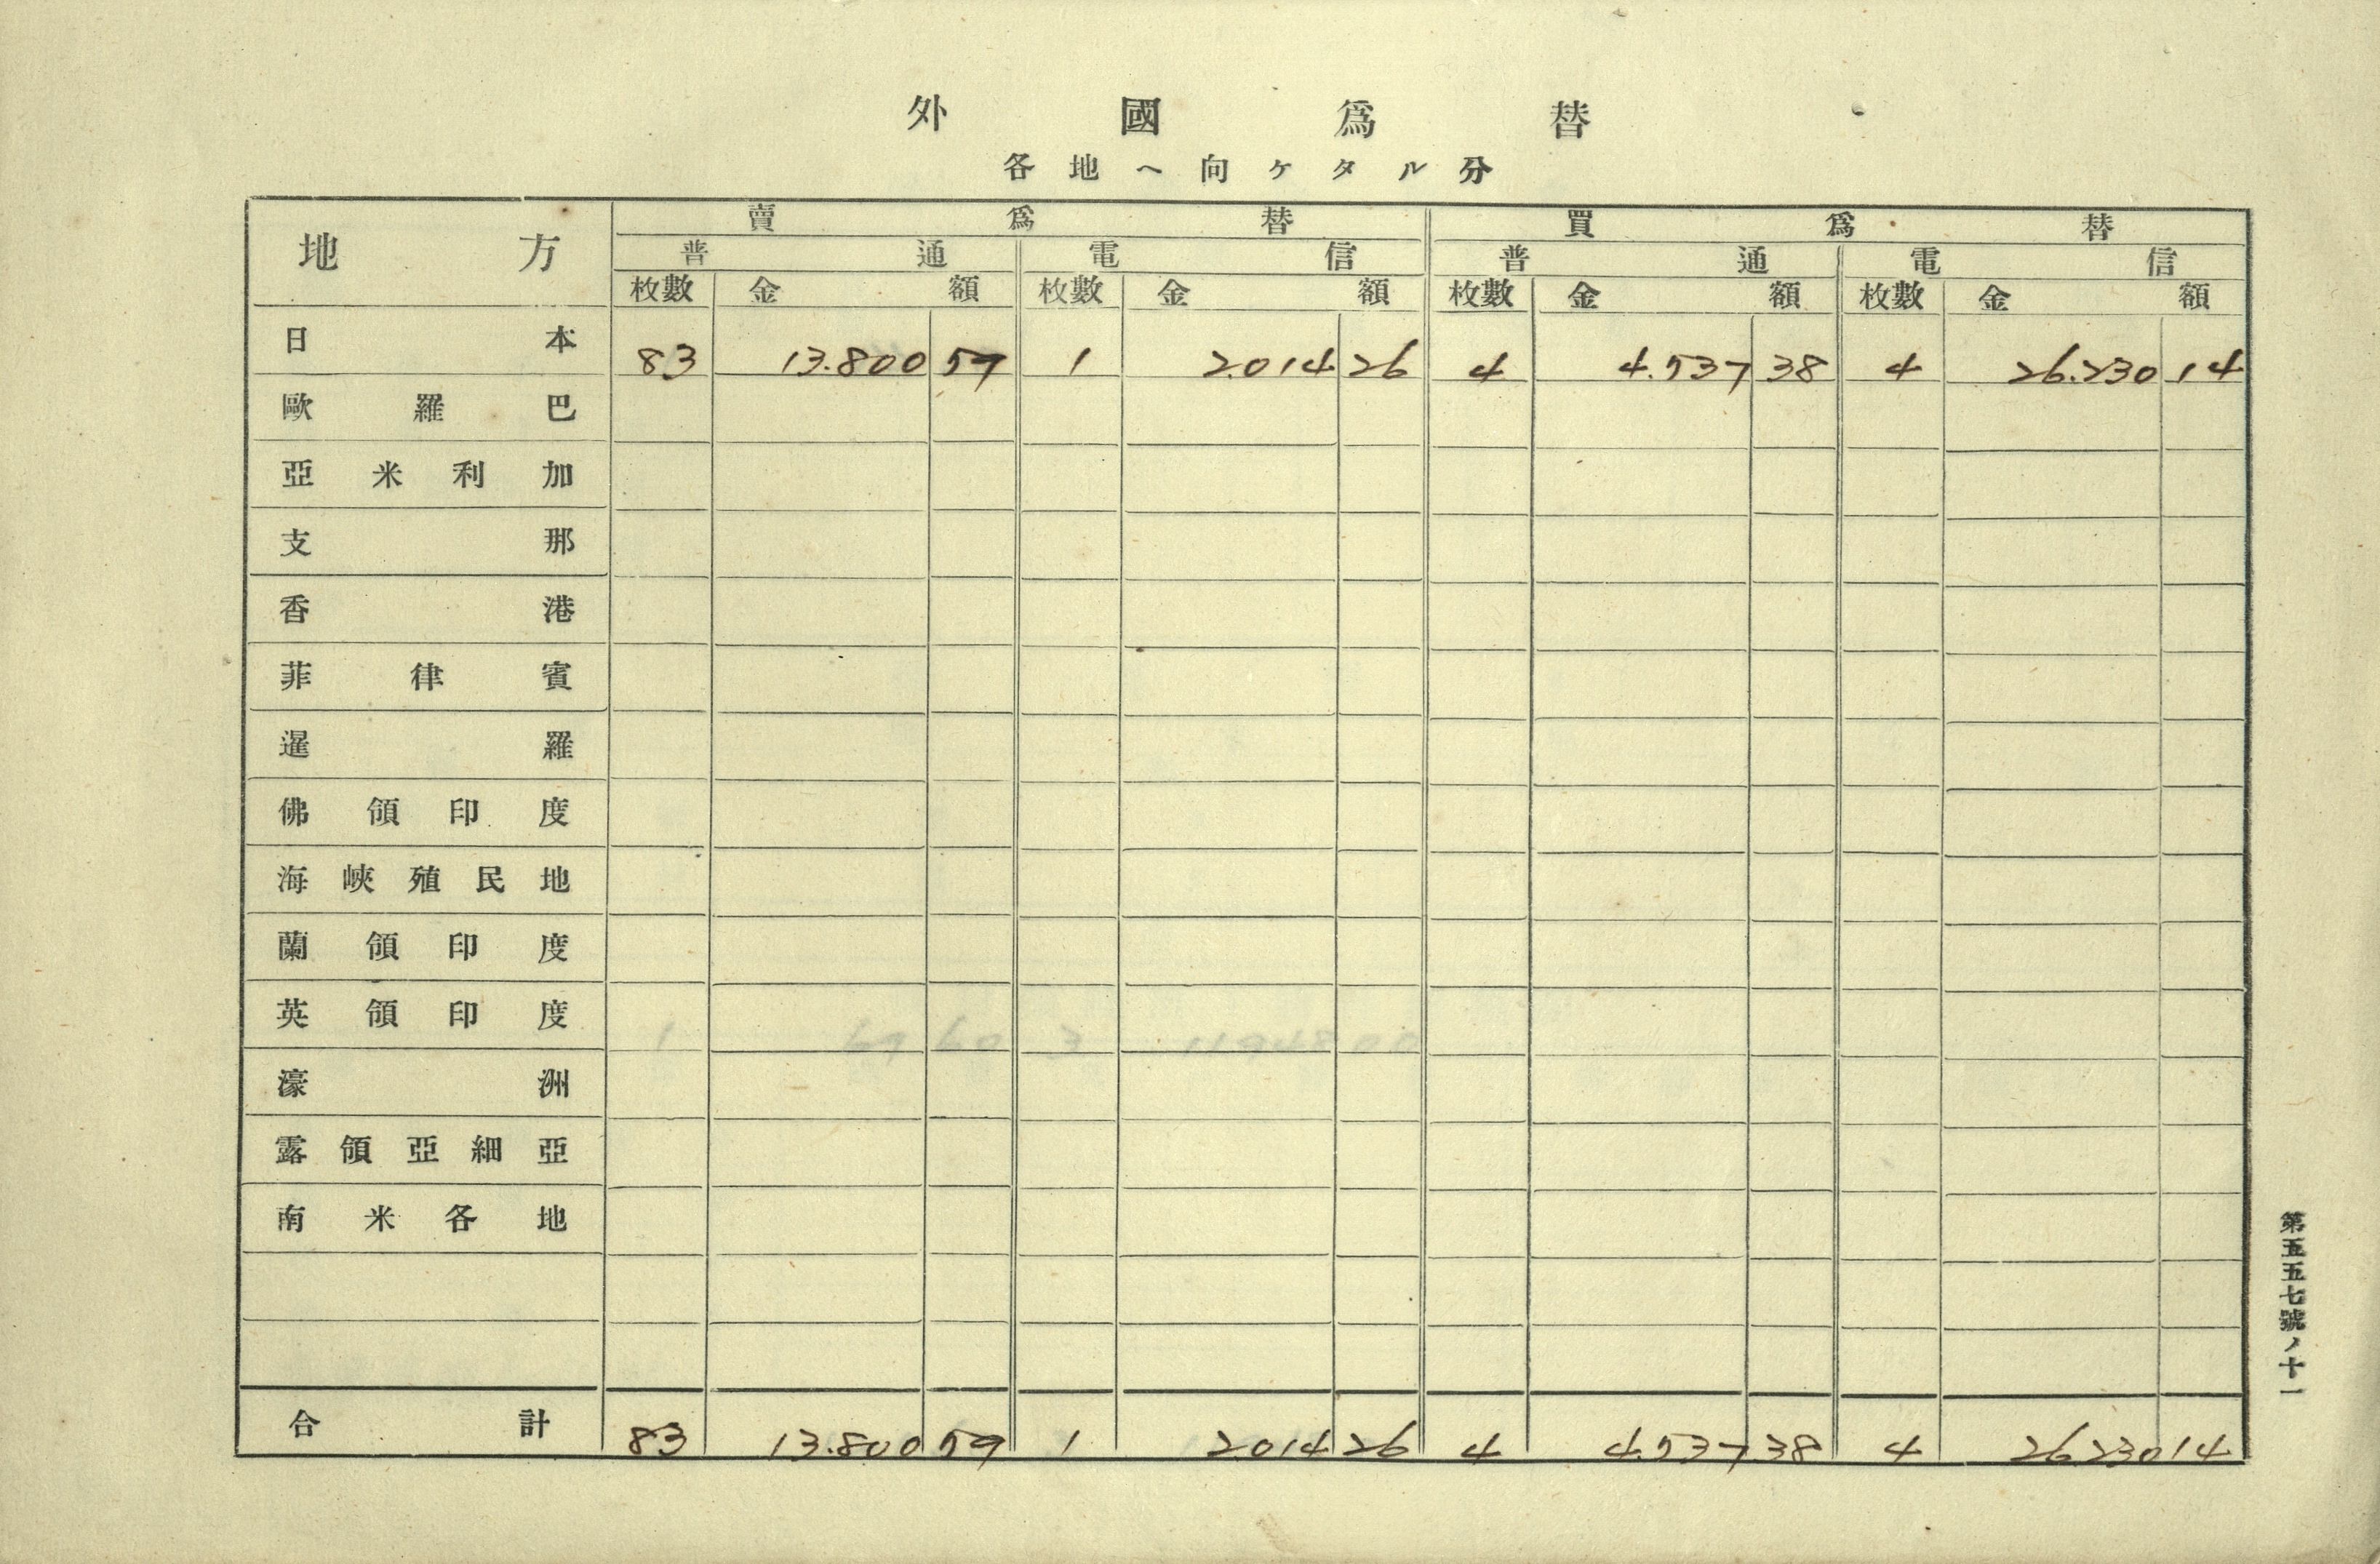 外國爲替
各地ヘ向ケタル分
地方 賣爲替 買爲替
普通 電信 普通 電信
枚數 金額 枚數 金額 枚數 金額 枚數 金額
日本 83 13.800 59 1 2.014 26 4 4.537 38 4 26.230 14
歐羅巴
亞米利加
支那
香港
菲律賓
暹羅
佛領印度
海峽殖民地
蘭領印度
英領印度
濠洲
露領亞細亞
南米各地
合計 83 13.800 59 1 2.014 26 4 4.537 38 4 26.230 14
第五五七號ノ十一